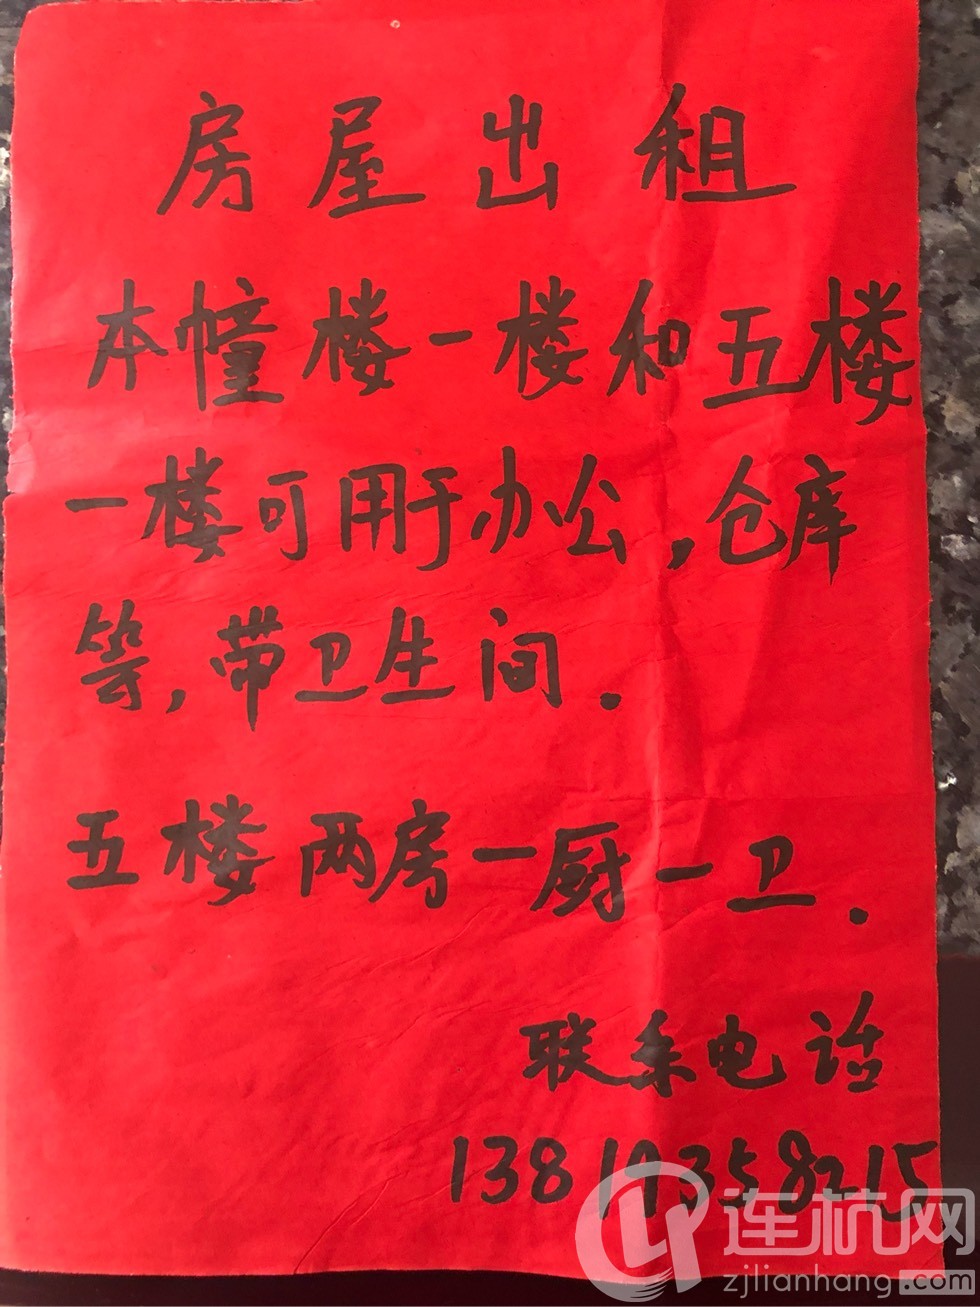 房屋出租
本幢楼一楼和五楼
一楼可用于办公,仓库
等,带卫生间.
五楼两房一厨一卫.
联系电话
13819358215
连杭网
zjlianhang.com